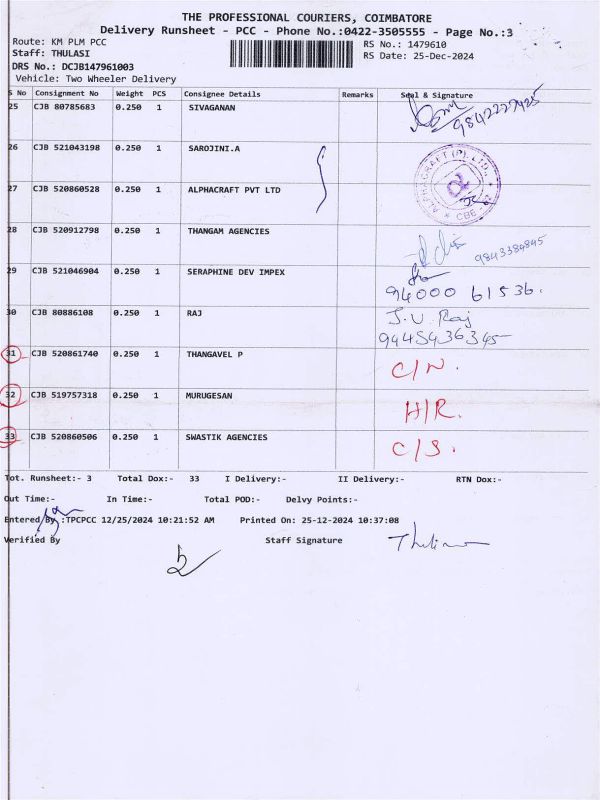 THE PROFESSIONAL COURIERS, COIMBATORE
Delivery Runsheet - PCC - Phone No.:0422-3505555 - Page No.:3
Route: KM PLM PCC
Staff: THULASI
DRS No.: DCJB147961003
Vehicle: Two Wheeler Delivery
RS No.: 1479610
RS Date: 25-Dec-2024
S No Consignment No Weight PCS Consignee Details Remarks Seal & Signature
25 CJB 80785683 0.250 1 SIVAGANAN 9842227425
26 CJB 521043198 0.250 1 SAROJINI.A
27 CJB 520860528 0.250 1 ALPHACRAFT PVT LTD
ALPHACRAFT (P) LTD. * CBE
28 CJB 520912798 0.250 1 THANGAM AGENCIES 9843384845
29 CJB 521046904 0.250 1 SERAPHINE DEV IMPEX 94000 61536.
30 CJB 80886108 0.250 1 RAJ J.V. Raj
9445436345
31 CJB 520861740 0.250 1 THANGAVEL P C/N.
32 CJB 519757318 0.250 1 MURUGESAN H/R.
33 CJB 520860506 0.250 1 SWASTIK AGENCIES C/S.
Tot. Runsheet:- 3 Total Dox:- 33 I Delivery:- II Delivery:- RTN Dox:-
Out Time:- In Time:- Total POD:- Delvy Points:-
Entered By :TPCPCC 12/25/2024 10:21:52 AM Printed On: 25-12-2024 10:37:08
Verified By Staff Signature